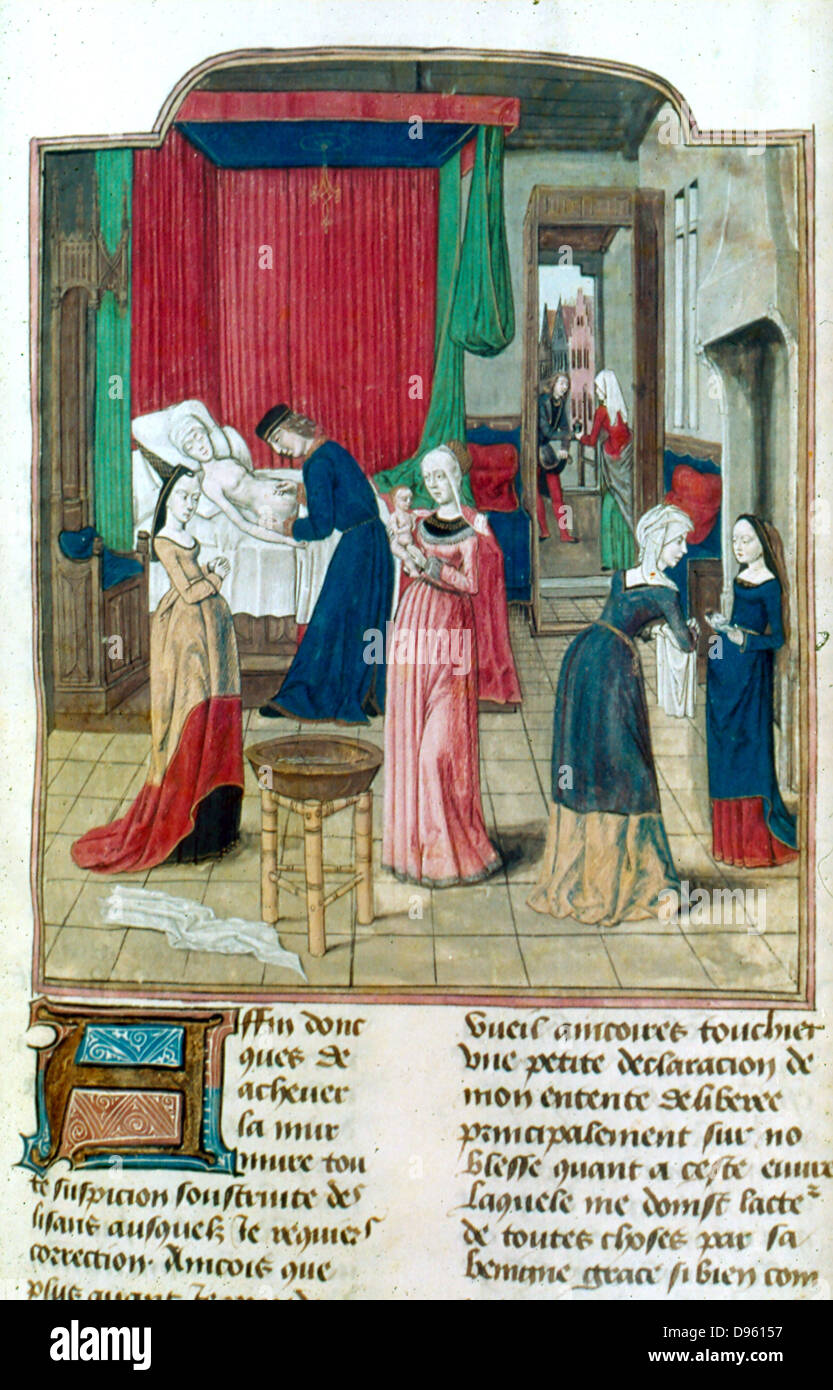 Affin donc
ques de
achever
la mur
mure tou
te suspicion soustraite des
lisans ausquelz Je requiers
correction. Aincois que
plus auant
vueil aincoires touchier
vne petite declaracion de
mon entente deliberee
principalement sur no
blesse quant a ceste euure
Laquele me doinst lacteᵉ
de toutes choses par sa
benigne grace si bien com
alamy stock photo
D96157
www.alamy.com